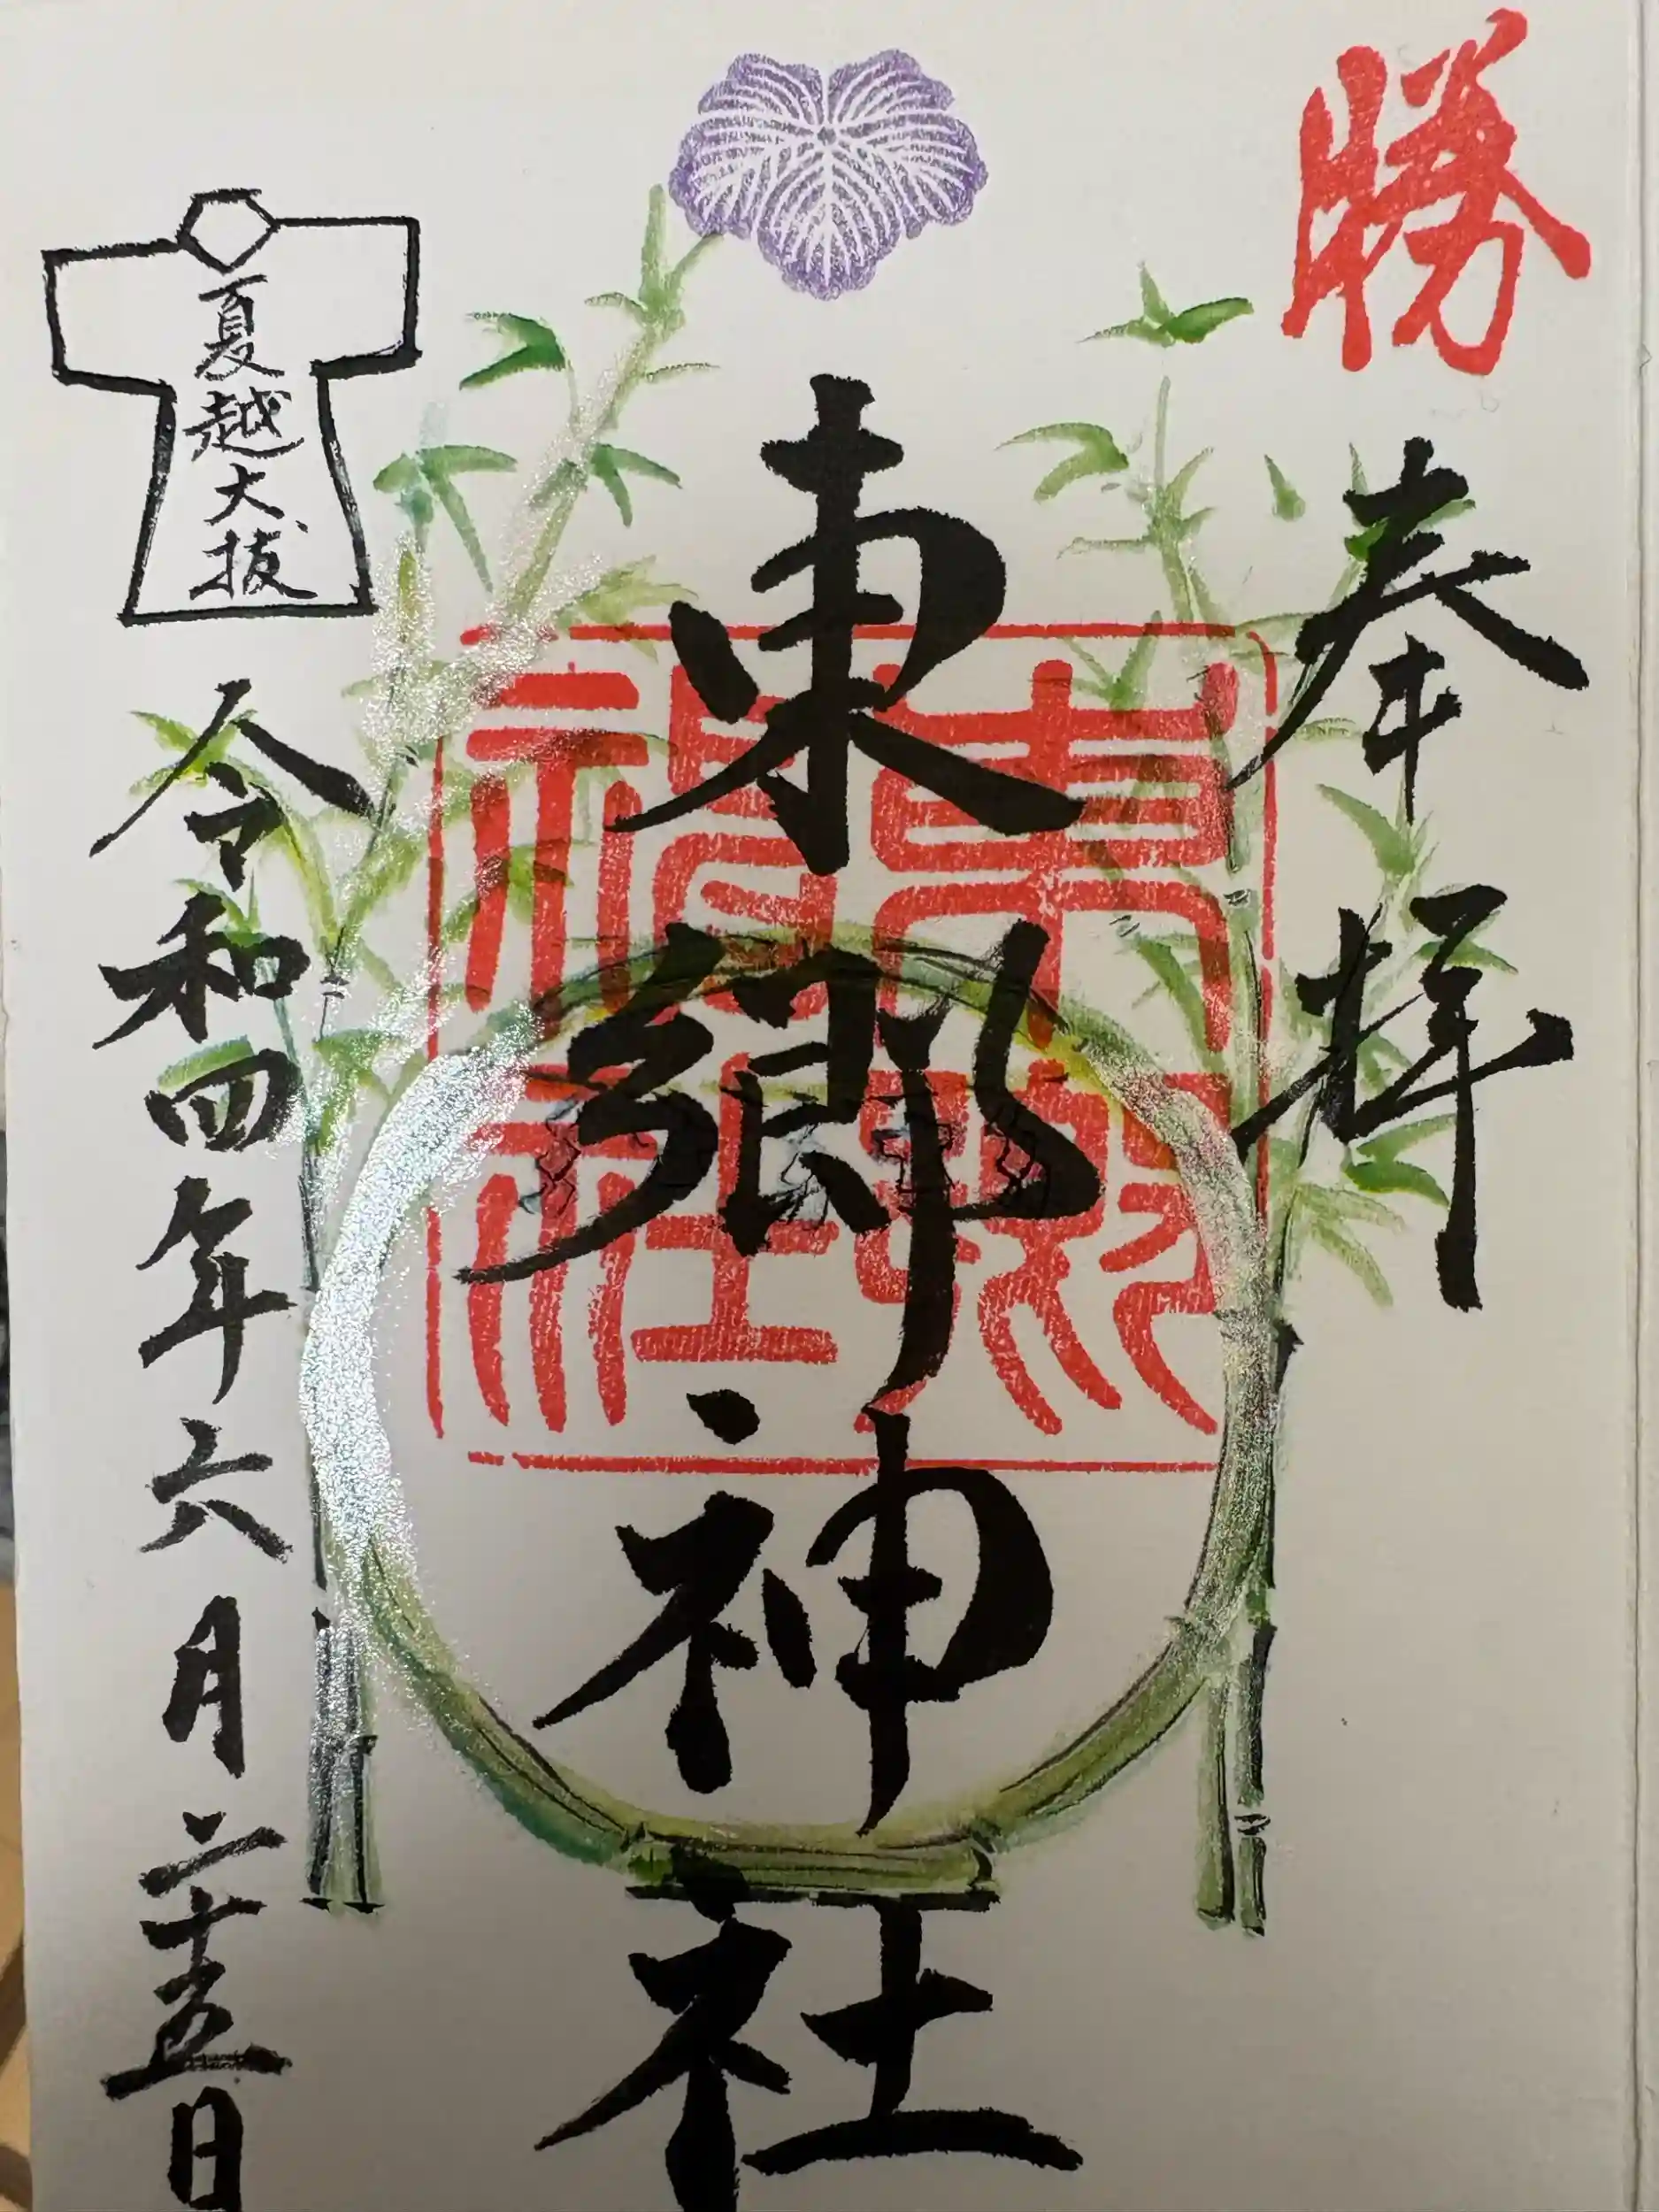 勝
奉拝
東郷神社
東郷神社
夏越大祓
令和四年六月二十五日